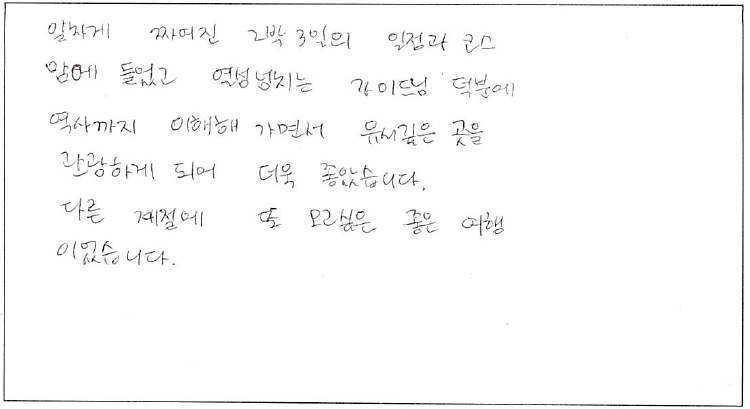 알차게 짜여진 2박 3일의 일정과 코스
맘에 들었고 열성넘치는 가이드님 덕분에
역사까지 이해해 가면서 유서깊은 곳을
관광하게 되어 더욱 좋았습니다.
다른 계절에 또 오고싶은 좋은 여행
이었습니다.